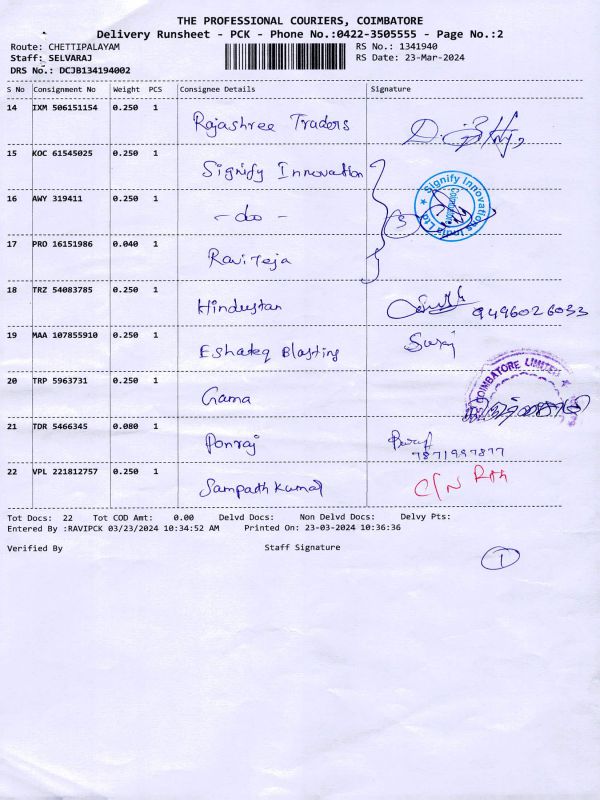 THE PROFESSIONAL COURIERS, COIMBATORE
Delivery Runsheet - PCK - Phone No.:0422-3505555 - Page No.:2
Route: CHETTIPALAYAM RS No.: 1341940
Staff: SELVARAJ RS Date: 23-Mar-2024
DRS No.: DCJB134194002
S No Consignment No Weight PCS Consignee Details Signature
14 IXM 506151154 0.250 1
Rajashree Traders
15 KOC 61545025 0.250 1
Signify Innovation
Signify Innovations India Ltd
Coimbatore
16 AWY 319411 0.250 1
- do -
3
17 PRO 16151986 0.040 1
Raviteja
18 TRZ 54083785 0.250 1
Hindustan 9496026033
19 MAA 107855910 0.250 1
Eshateq Blasting Suraj
20 TRP 5963731 0.250 1
COIMBATORE LIMITED
Gama
21 TDR 5466345 0.080 1
Ponraj
7871997877
22 VPL 221812757 0.250 1
Sampath Kumar C/N
Tot Docs: 22 Tot COD Amt: 0.00 Delvd Docs: Non Delvd Docs: Delvy Pts:
Entered By :RAVIPCK 03/23/2024 10:34:52 AM Printed On: 23-03-2024 10:36:36
Verified By Staff Signature
1